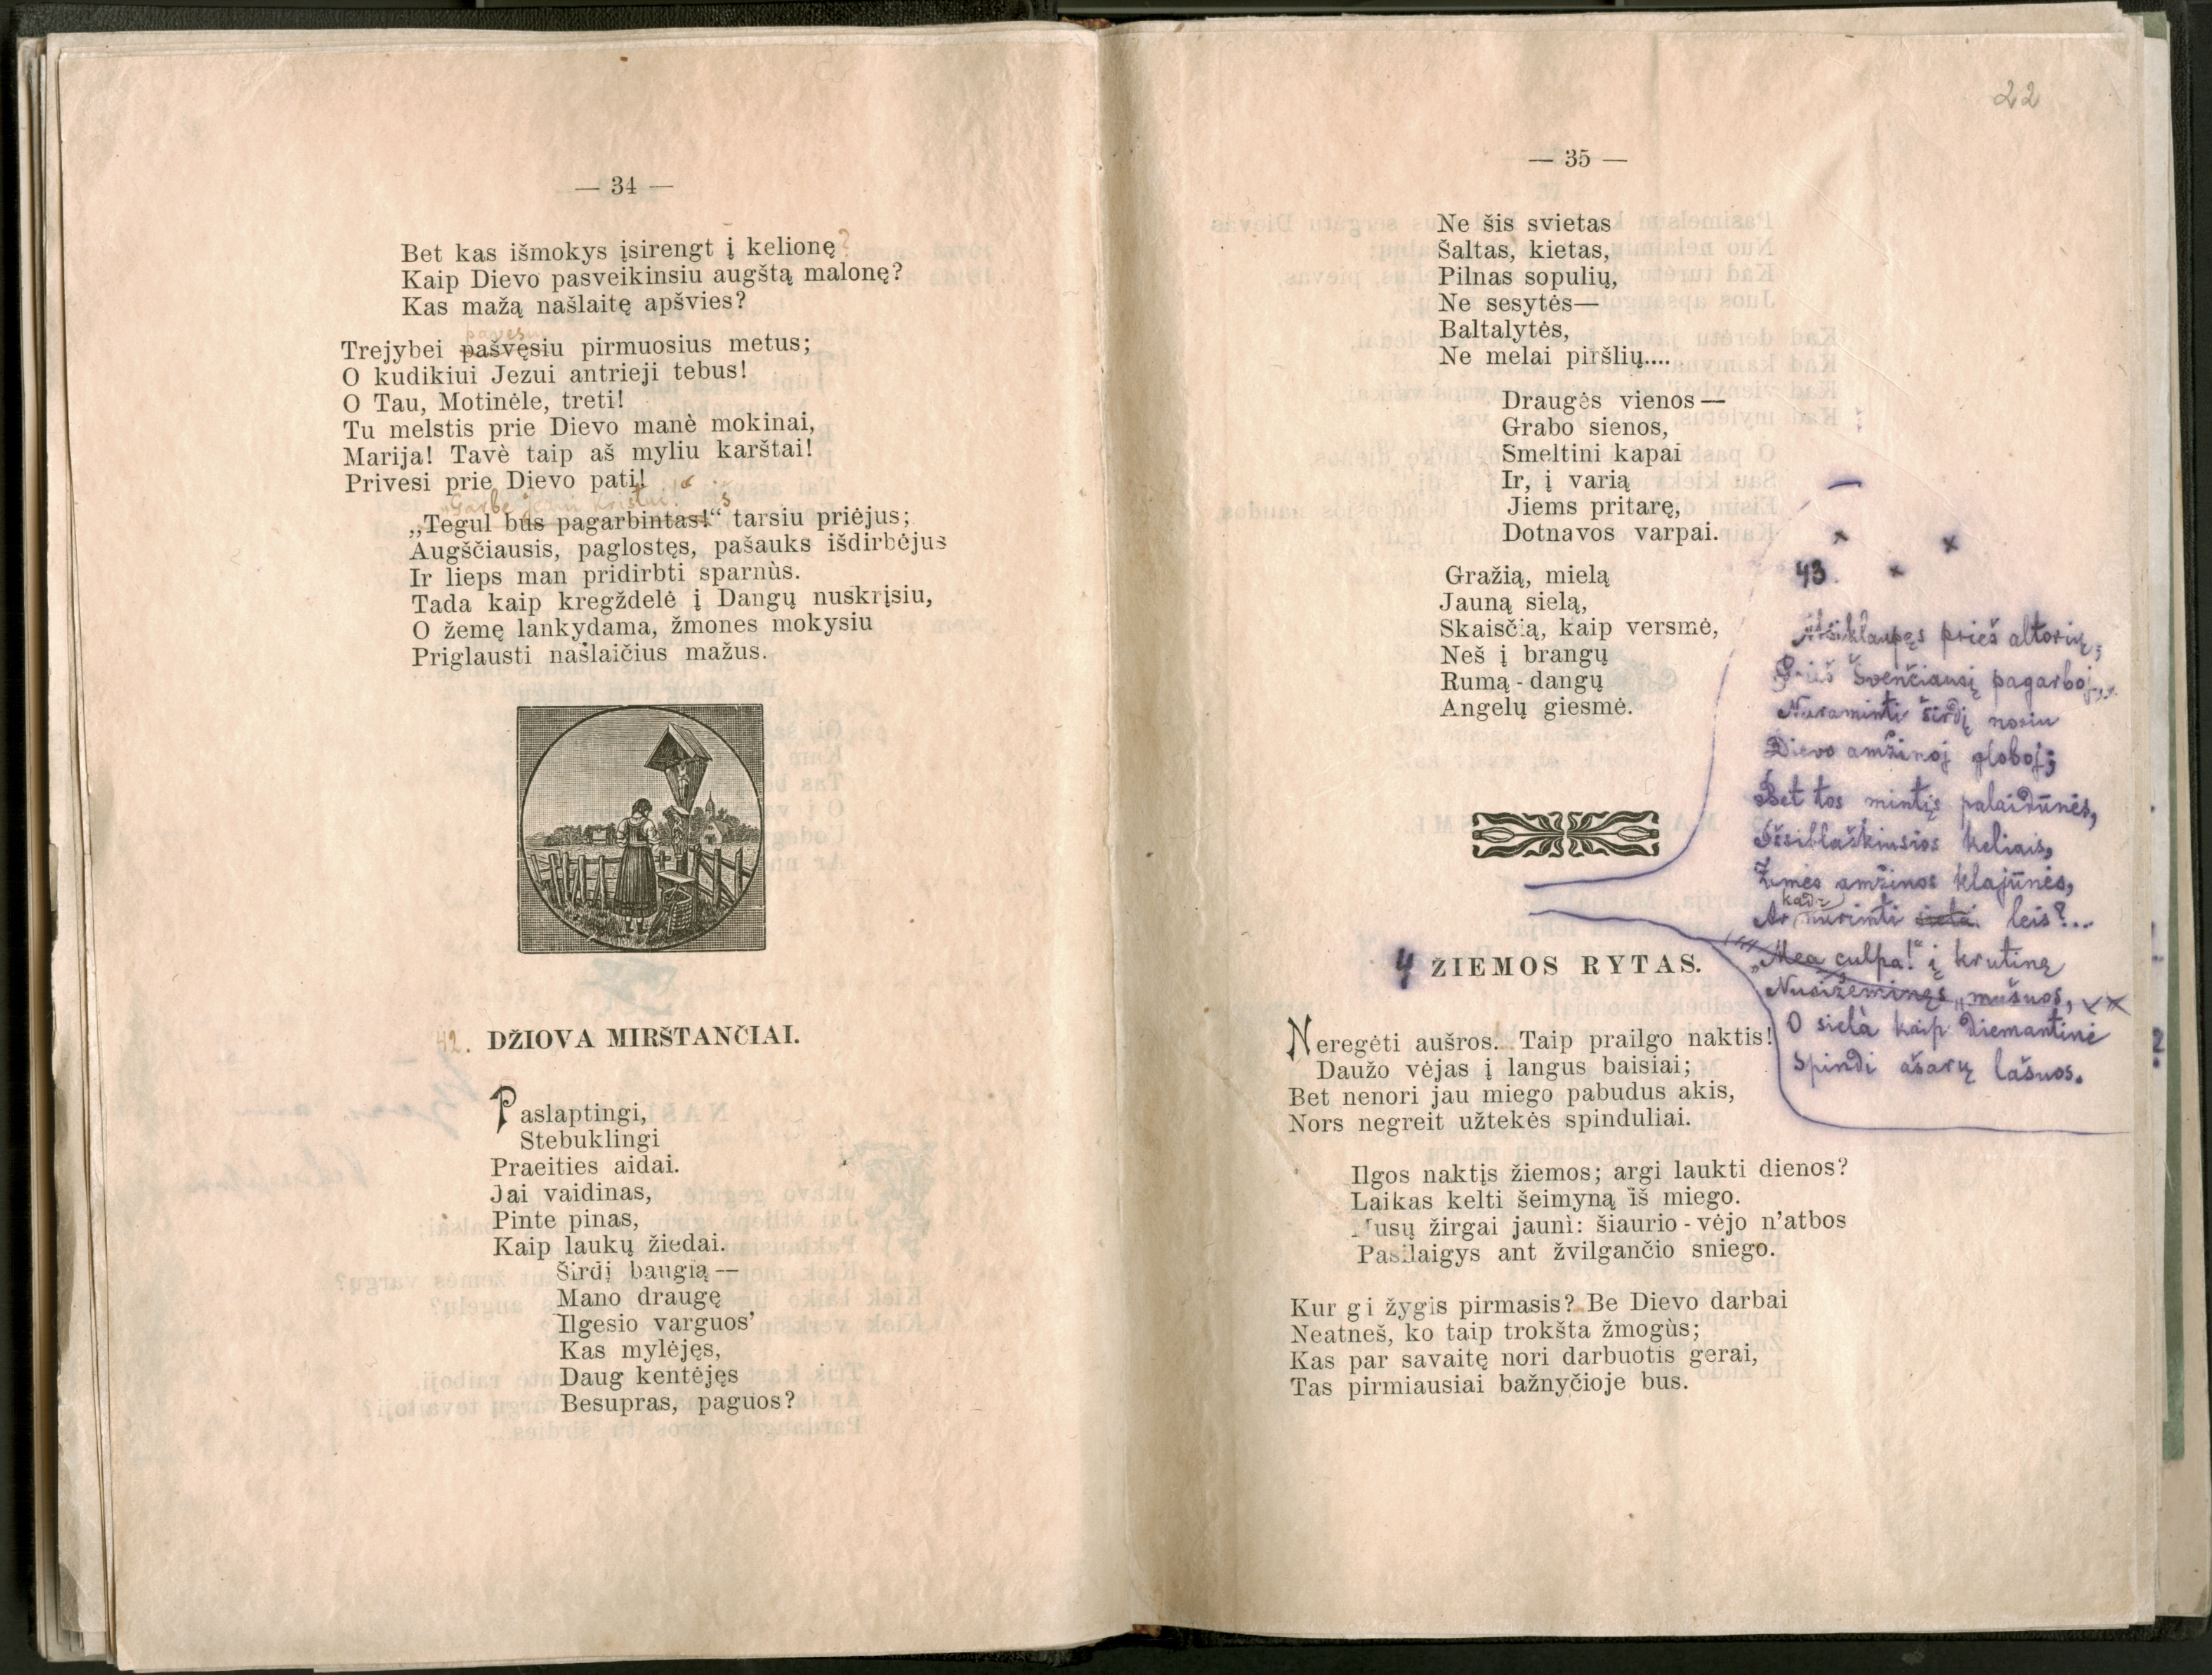 — 34 —
Bet kas išmokys įsirengt į kelionę?
Kaip Dievo pasveikinsiu augštą malonę?
Kas mažą našlaitę apšvies?
Trejybei pašvęsiu pirmuosius metus;
O kudikiui Jezui antrieji tebus!
O Tau, Motinėle, treti!
Tu melstis prie Dievo manè mokinai,
Marija! Tavè taip aš myliu karštai!
Privesi prie Dievo pati!
„Garbė Jėzui Kristui!
„Tegul bus pagarbintas!“ tarsiu priėjus;
Augščiausis, paglostęs, pašauks išdirbėjus
Ir lieps man pridirbti sparnùs.
Tada kaip kregždelė į Dangų nuskrįsiu,
O žemę lankydama, žmones mokysiu
Priglausti našlaičius mažus.
42. DŽIOVA MIRŠTANČIAI.
Paslaptingi,
Stebuklingi
Praeities aidai.
Jai vaidinas,
Pinte pinas,
Kaip laukų žiedai.
Širdį baugią —
Mano draugę
Ilgesio varguos’
Kas mylėjęs,
Daug kentėjęs
Besupras, paguos?
22
— 35 —
Ne šis svietas
Šaltas, kietas,
Pilnas sopulių,
Ne sesytės—
Baltalytės,
Ne melai piršlių....
Draugės vienos—
Grabo sienos,
Smeltini kapai
Ir, į varią
Jiems pritarę,
Dotnavos varpai.
Gražią, mielą
Jauną sielą,
Skaisčią, kaip versmė,
Neš į brangų
Rumą-dangų
Angelų giesmė.
43.
Atsiklaupęs prieš altorių,
Prieš Švenčiausį pagarboj,
Nuraminti širdį noriu
Dievo amžinoj globoj;
Bet tos mintįs palaidūnės,
Išsiblaškiusios keliais,
Žemės amžinos klajūnės,
Ar kada nurimti leis?...
„Mea culpa!“ į krutinę
Nusižeminęs mušuos,
O siela kaip diemantinė
Spindi ašarų lašuos.
4 ŽIEMOS RYTAS.
Neregėti aušros... Taip prailgo naktis!
Daužo vėjas į langus baisiai;
Bet nenori jau miego pabudus akis,
Nors negreit užtekės spinduliai.
Ilgos naktįs žiemos; argi laukti dienos?
Laikas kelti šeimyną iš miego.
Musų žirgai jaunì: šiaurio-vėjo n’atbos
Pasilaigys ant žvilgančio sniego.
Kur gi žygis pirmasis? Be Dievo darbai
Neatneš, ko taip trokšta žmogùs;
Kas par savaitę nori darbuotis gerai,
Tas pirmiausiai bažnyčioje bus.